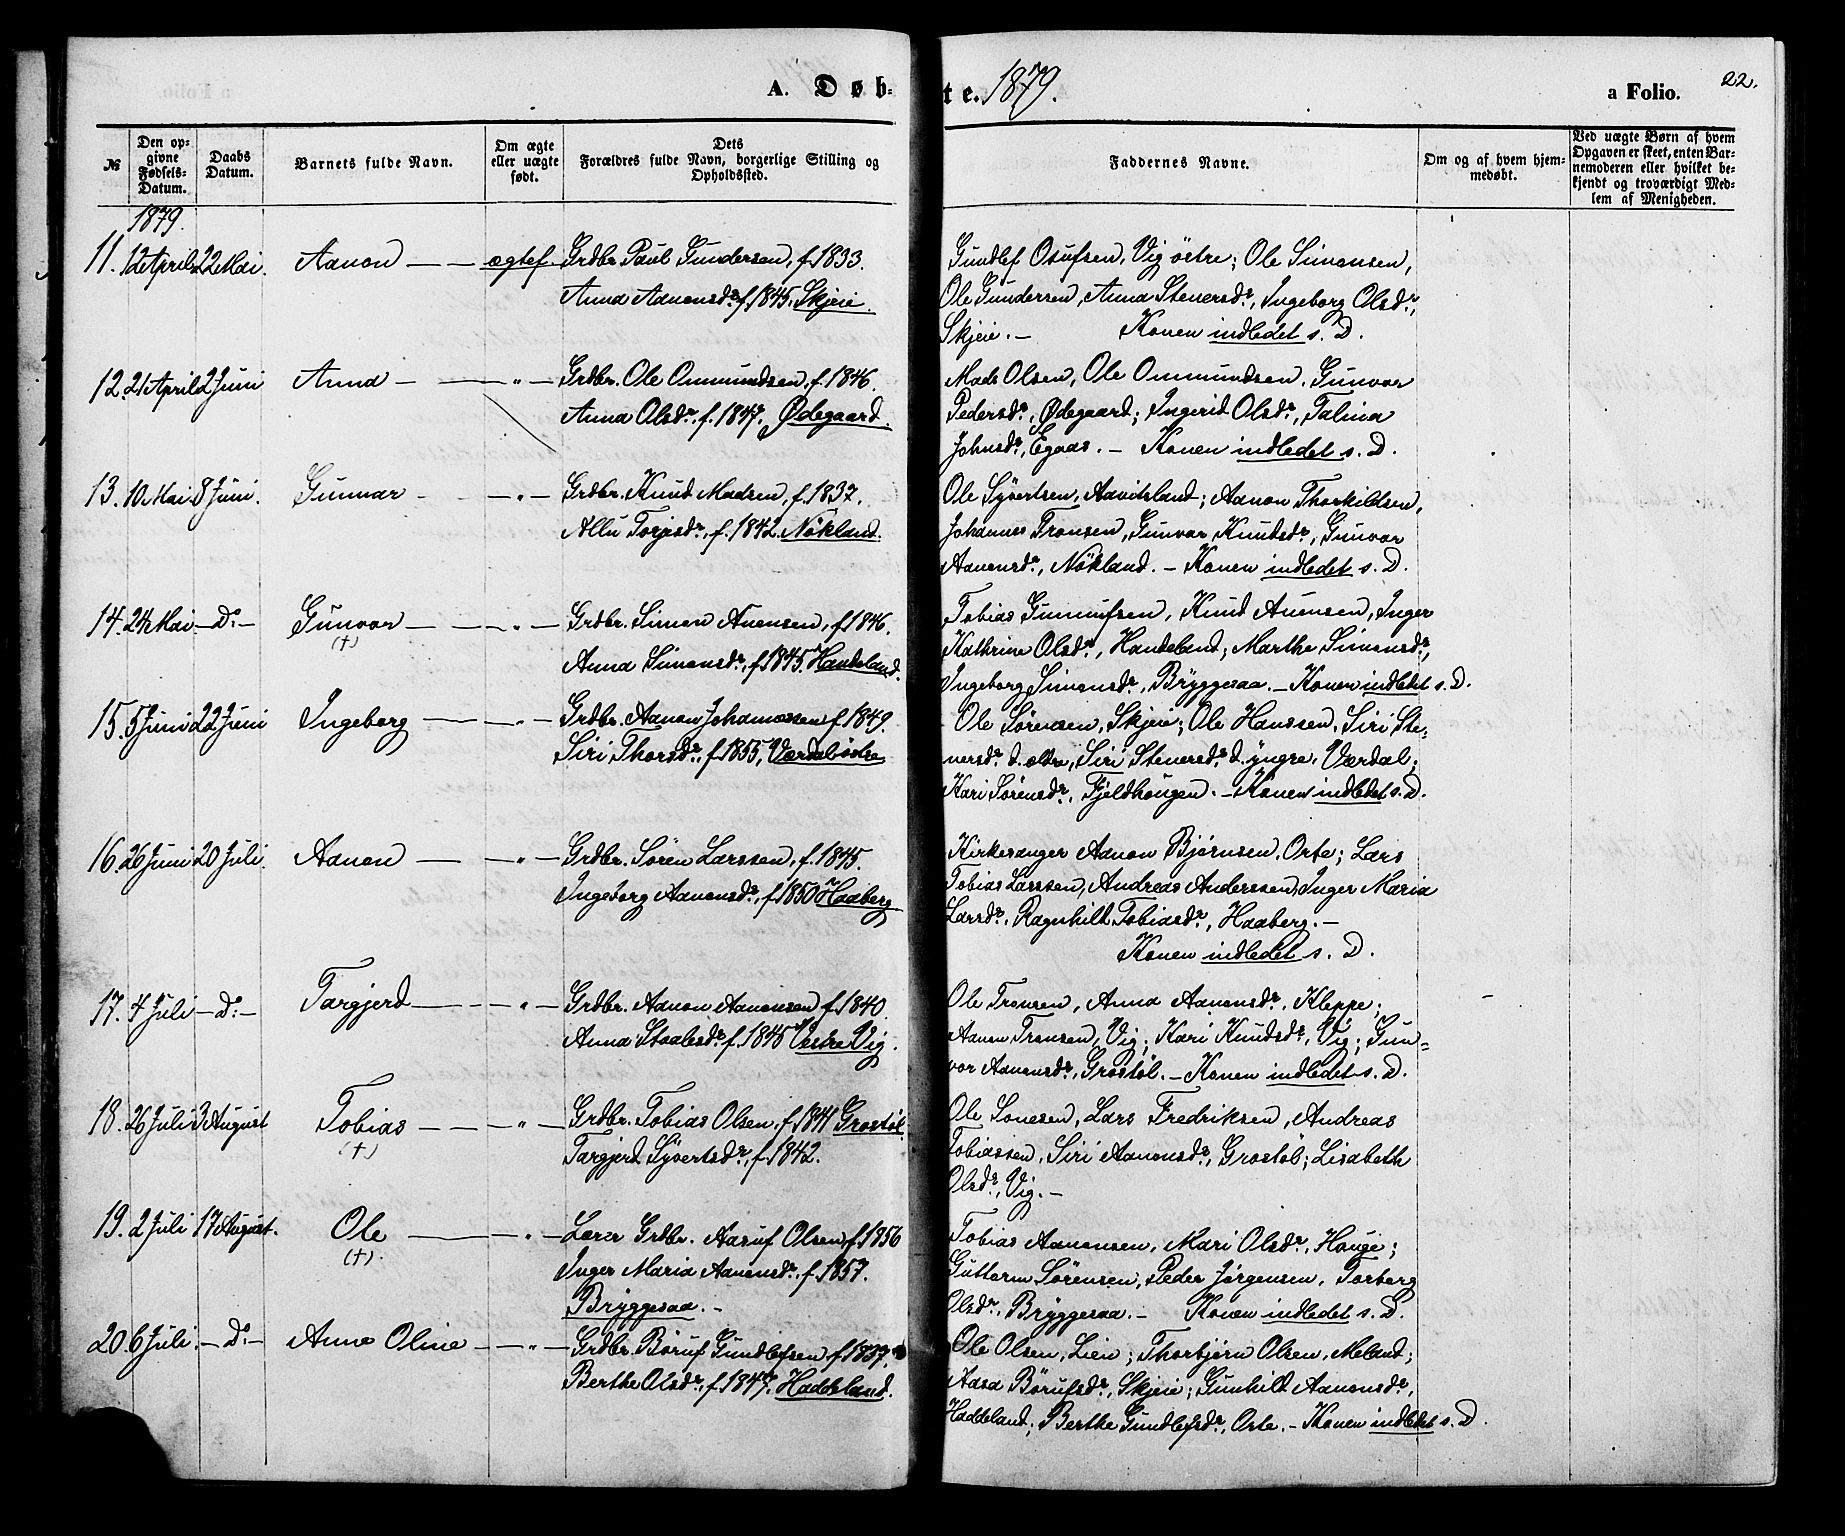 A. Døb-
te. 1879.
a Folio. 22.
№
Den op-
givne
Fødsels-
Datum.
Daabs
Datum.
Barnets fulde Navn.
Om ægte
eller uægte
født.
Dets
Forældres fulde Navn, borgerlige Stilling og
Opholdssted.
Faddernes Navne.
Om og af hvem hjem-
medøbt.
Ved uægte Børn af hvem
Opgaven er skeet, enten Bar-
nemoderen eller hvilket be-
kjendt og troværdigt Med-
lem af Menigheden.
1879.
11. 12 April 22 Mai. Aanon — — ægtef. Grdbr. Paul Gundersen, f. 1833.
Anna Aanensdr. f. 1845. Skjeie.
Gundlef Osufsen, Vig østre; Ole Simonsen,
Ole Gundersen, Anna Stenersdr., Ingeborg Olsdr.,
Skjeie. — Konen indledet s. D.
12. 21 April 2 Juni Anna — — „ — Grdbr. Ole Ommundsen, f. 1846.
Anna Olsdr. f. 1847. Ødegaard.
Mads Olsen, Ole Ommundsen, Gunvor
Pedersdr., Ødegaard; Ingerid Olsdr., Talina
Johnsdr., Egaas. — Konen indledet s. D.
13. 10 Mai 8 Juni. Gunnar — — „ — Grdbr. Knud Madsen, f. 1837.
Allu Torjesdr., f. 1842. Nökland.
Ole Syvertsen, Aavitsland; Aanon Thorkildsen,
Johannes Tronsen, Gunvor Knudsdr., Gunvor
Aanensdr., Nökland. — Konen indledet s. D.
14. 24 Mai — Do — Gunvor — — „ — Grdbr. Simon Auensen, f. 1846.
(†)
Anna Simonsdr., f. 1845. Handeland.
Tobias Gunnufsen, Knud Auensen, Inger
Kathrine Olsdr., Handeland; Marthe Simonsdr.,
Ingeborg Simonsdr., Bryggesaa. — Konen indledet s. D.
15. 5 Juni 22 Juni Ingeborg — — „ — Grdbr. Aanon Johannessen f. 1849.
Siri Thorsdr., f. 1855, Værdal östre
Ole Sörensen, Skjeie; Ole Hanssen, Siri Ste-
nersdr. d. ældre, Siri Stenersdr. d. yngre, Værdal;
Kari Sörensdr., Fjeldhougen. — Konen indledet s. D.
16. 26 Juni 20 Juli. Aanon — — „ — Grdbr. Sören Larssen, f. 1845.
Ingeborg Aanensdr., f. 1850 Haaberg
Kirkesanger Aanon Bjørnsen, Orte; Lars
Tobias Larssen, Andreas Anderssen, Inger Maria
Larsdr., Ragnhild Tobiasdr., Haaberg. —
Konen indledet s. D.
17. 4 Juli — Do — Targjerd — — „ — Grdbr. Aanon Aanensen f. 1840.
Anna Staalesdr. f. 1845 Vestre Vig.
Ole Tronsen, Anna Aanonsdr., Kleppe;
Aanon Tronsen, Vig; Kari Knudsdr., Vig; Gun-
vor Aanonsdr., Grostöl. — Konen indledet s. D.
18. 26 Juli 3 August Tobias — — „ — Grdbr. Tobias Olsen, f. 1841 Grostöl.
(†)
Targjerd Syvertsdr., f. 1842.
Ole Lonesen, Lars Fredriksen, Andreas
Tobiassen, Siri Aanensdr., Grostöl; Lisabeth
Olsdr., Vig. —
19. 2 Juli 17 August. Ole — — „ — Lærer Grdbr. Aasuf Olsen, f. 1856
(†).
Inger Maria Aanensdr., f. 1857.
Bryggesaa. —
Tobias Aanensen, Mari Olsdr., Houge;
Guttorm Sörensen, Peder Jørgensen, Torborg
Olsdr., Bryggesaa. — Konen indledet s. D.
20. 6 Juli. — Do — Anne Oline — — „ — Grdbr. Böruf Gundlefsen f. 1837.
Berthe Olsdr., f. 1847. Haddeland.
Ole Olsen, Lien; Thorbjörn Olsen, Meland;
Aasa Börufsdr., Skjeie; Gunhild Aanensdr.,
Haddeland; Berthe Gundlefsdr., Orte. — Konen indledet s. D.